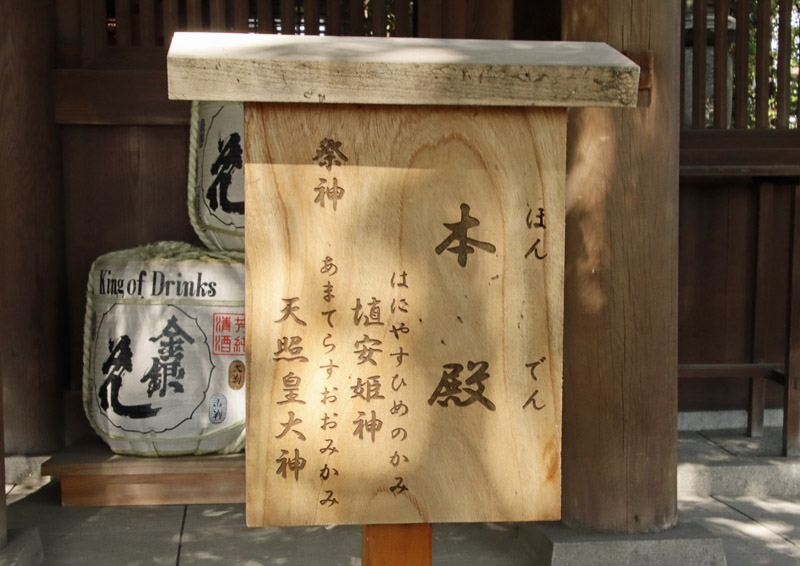 ほんでん
本殿
祭神
はにやすひめのかみ
埴安姫神
あまてらすおおみかみ
天照皇大神
King of Drinks
金銀
清酒